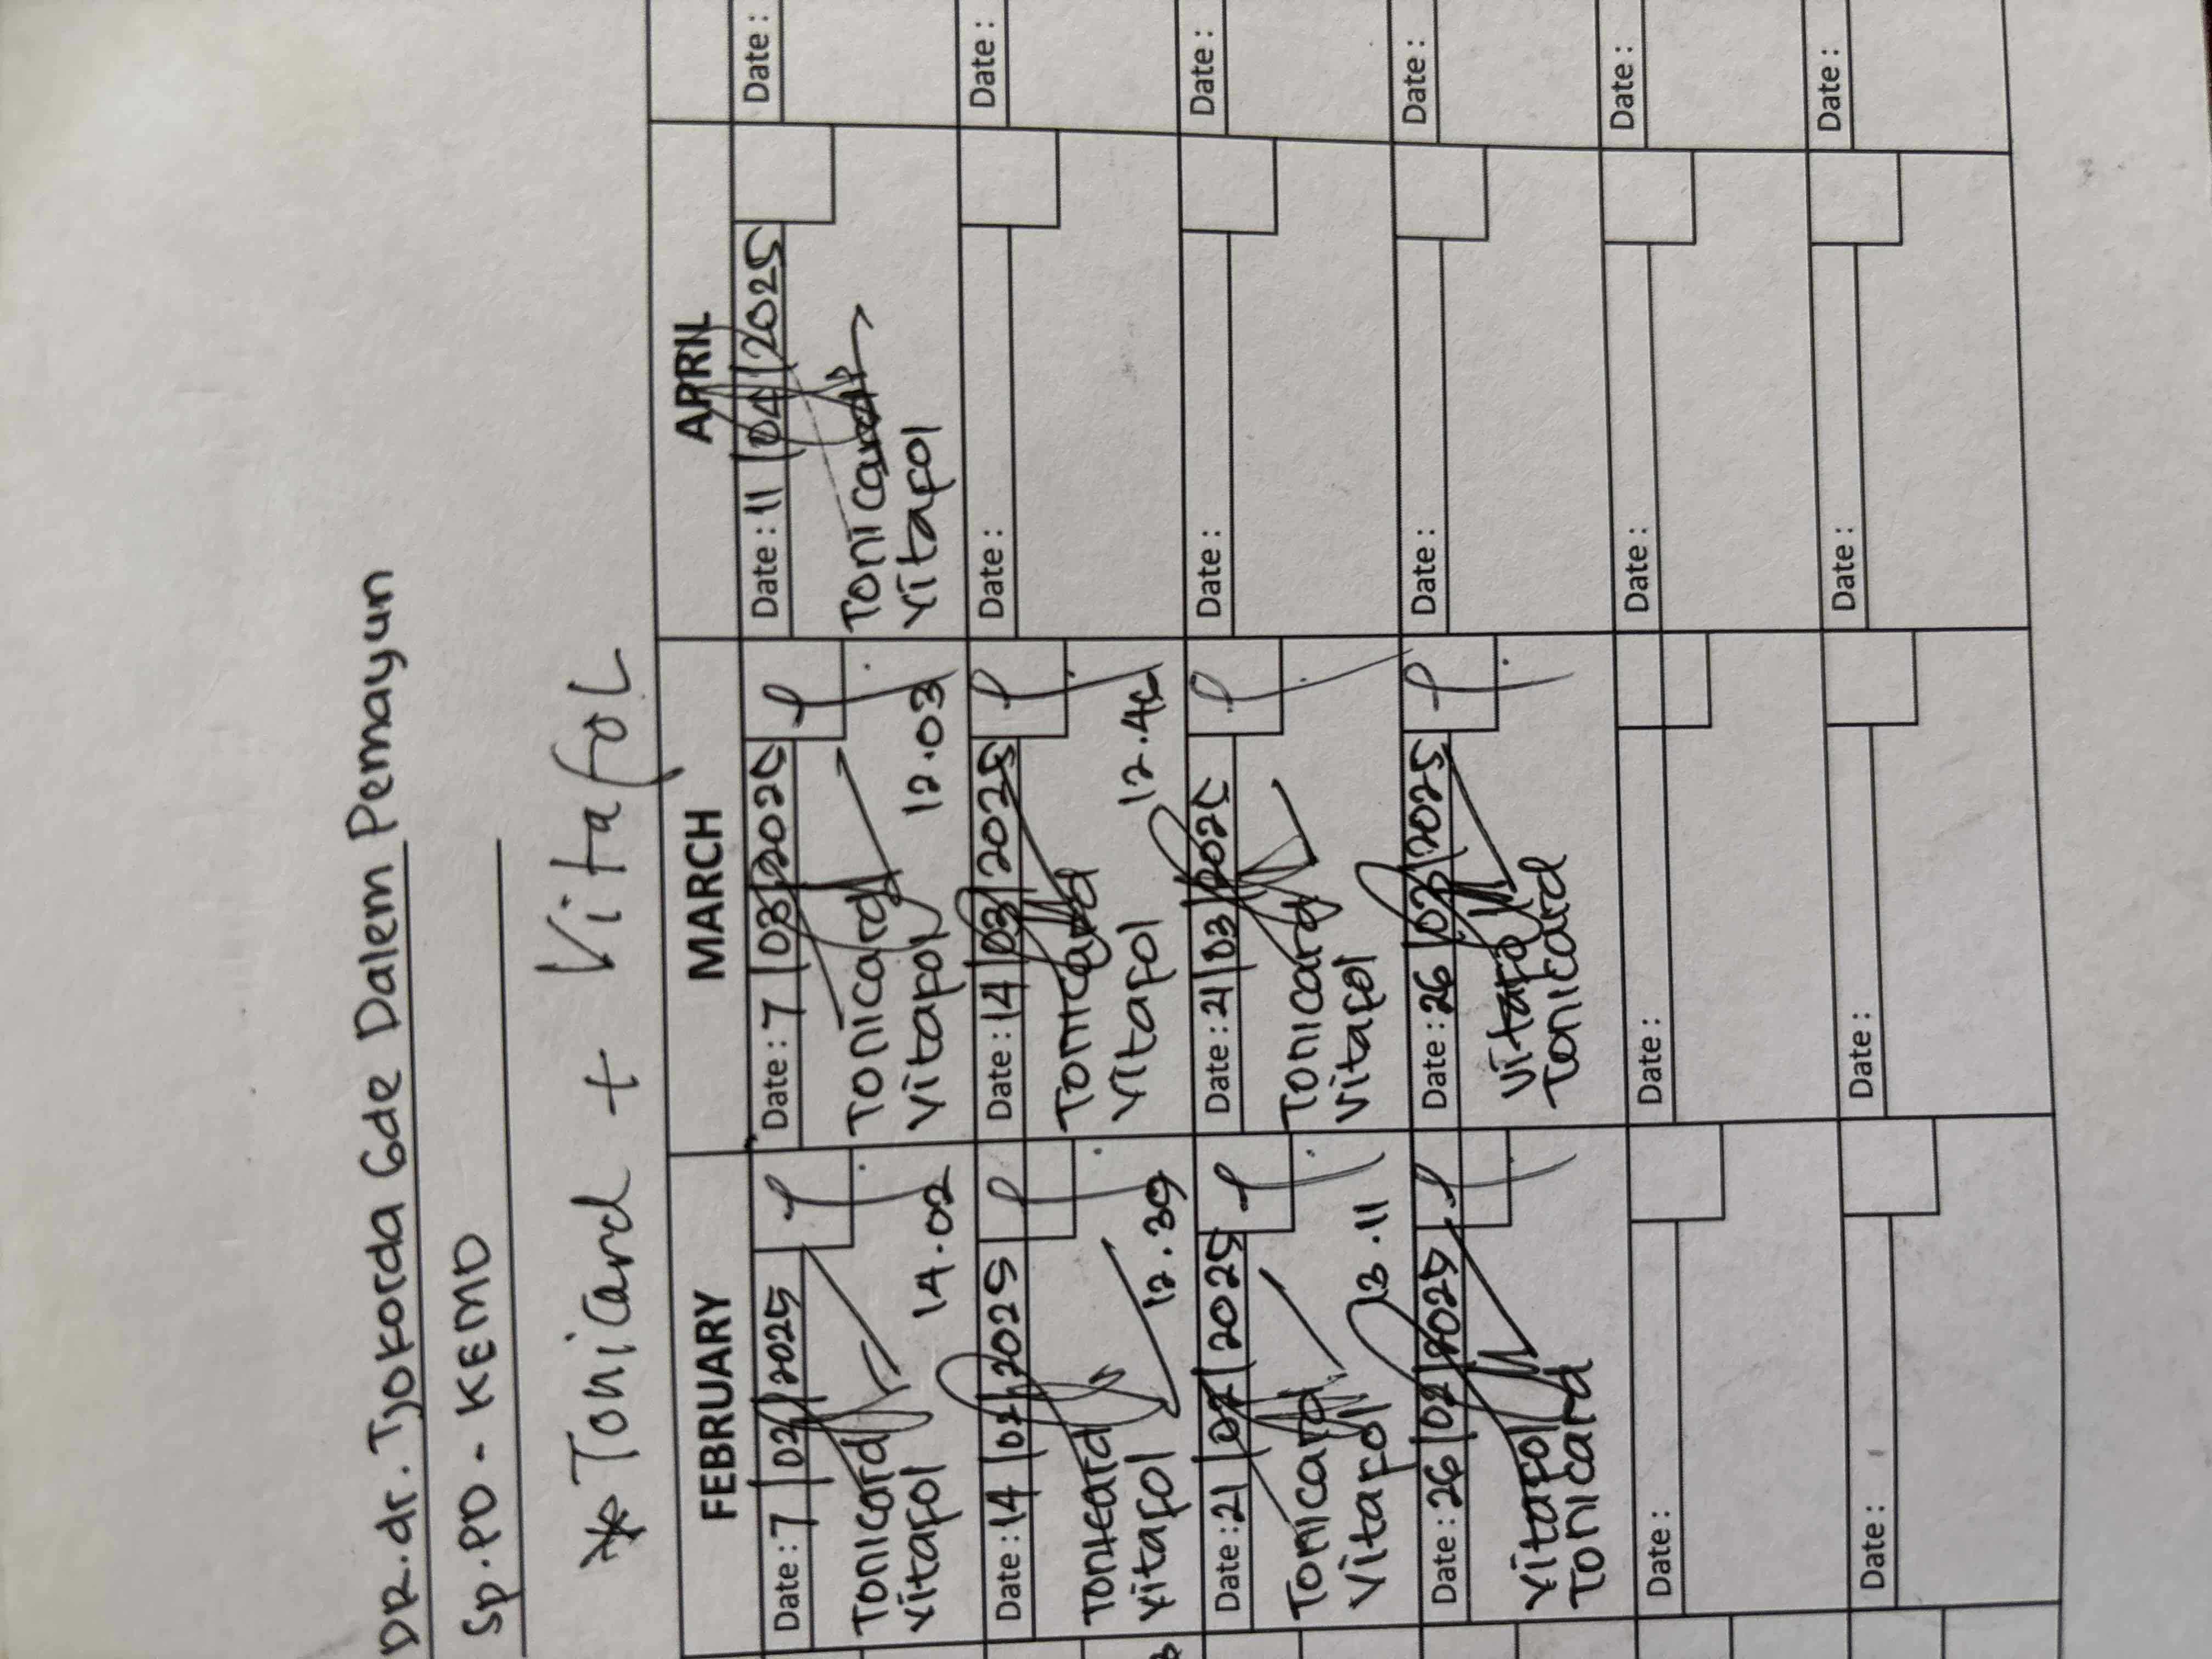 DR.dr. Tjokorda Gde Dalem Pemayun
Sp.PD - KEMD
* Tonicard + Vitafol
FEBRUARY MARCH APRIL
Date : 7 / 02 / 2025
Tonicard
Vitafol
14.02
Date : 7 / 03 / 2025
Tonicard
Vitafol
12.03
Date : 11 / 04 / 2025
Tonicard
Vitafol
Date :
Date : 14 / 02 / 2025
Tonicard
Vitafol
12.39
Date : 14 / 03 / 2025
Tonicard
Vitafol
Date :
Date :
Date : 21 / 02 / 2025
Tonicard
Vitafol
13.11
Date : 21 / 03 / 2025
Tonicard
Vitafol
Date :
Date :
Date : 26 / 02 / 2025
Vitafol
Tonicard
Date : 26 / 03 / 2025
Vitafol
Tonicard
Date :
Date :
Date :
Date :
Date :
Date :
Date :
Date :
Date :
Date :